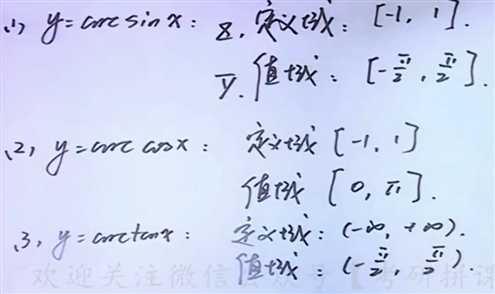 (1) y=arcsinx: x. 定义域: [-1, 1].
y. 值域: [-π/2, π/2].
(2) y=arccosx: 定义域 [-1, 1]
值域 [0, π].
(3) y=arctanx: 定义域: (-∞, +∞).
值域: (-π/2, π/2).
欢迎关注微信公众号【考研拼课